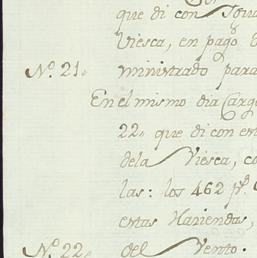 que di con
Viesca, en pago
Nº. 21. ministrado para
En el mismo dia Cargo
22. que di con
dela Viesca, co
las: los 462 pˢ.
estas Haziendas,
Nº. 22. del Vento.